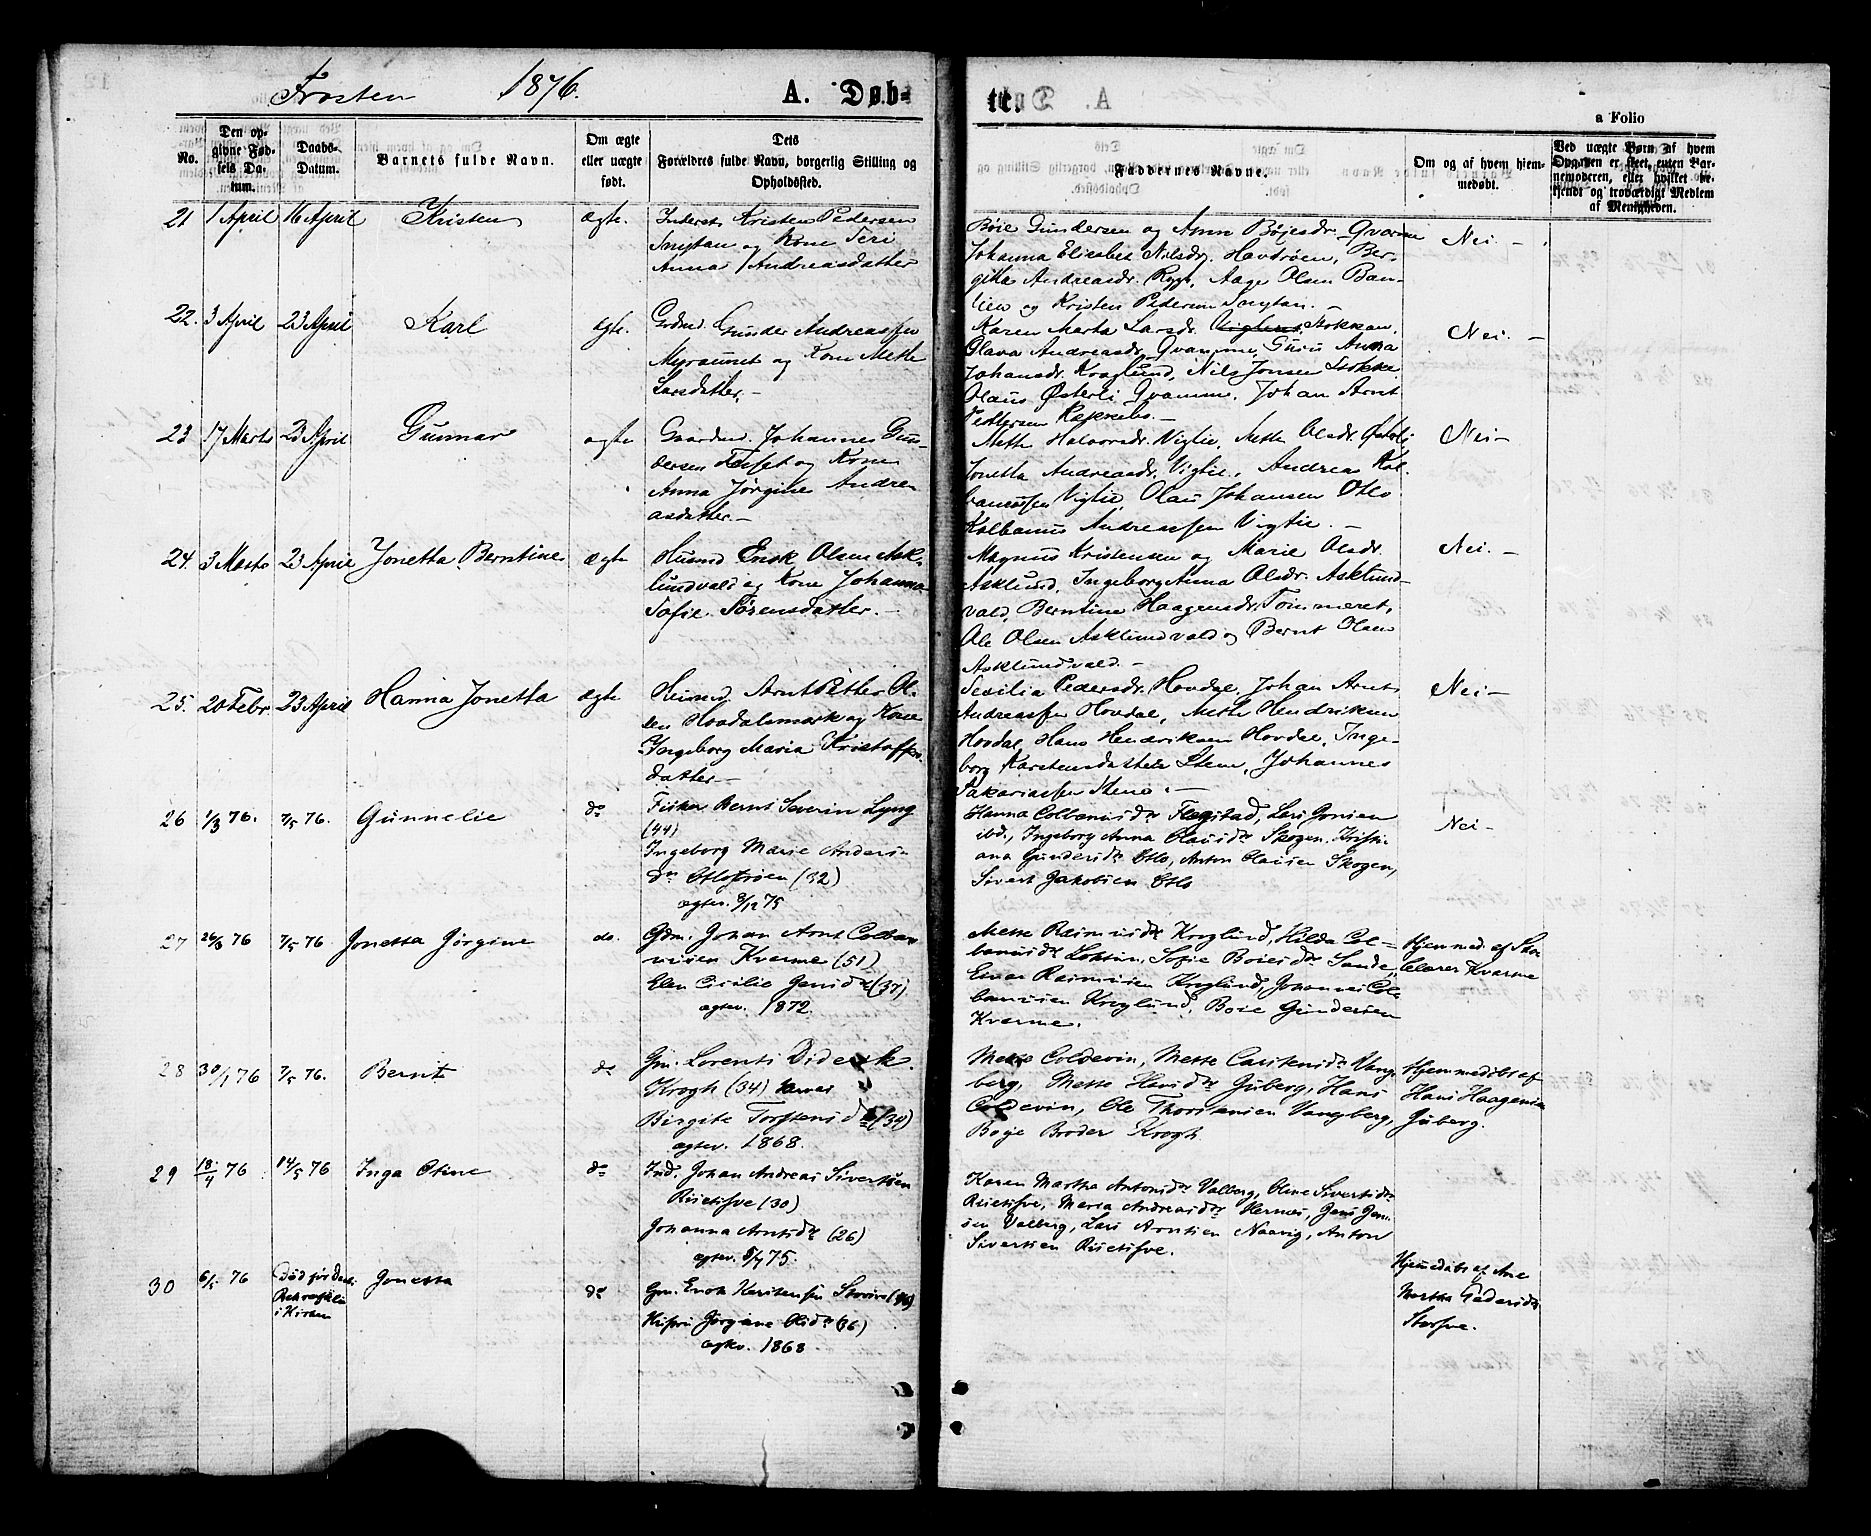 Frosten 1876. A. Døb-
te.
a Folio
No.
Den op-
givne Fød-
sels Da-
tum.
Daabs-
Datum.
Barnets fulde Navn.
Om ægte
eller uægte
født.
Dets
Forældres fulde Navn, borgerlig Stilling og
Opholdssted.
Faddernes Navne.
Om og af hvem hjem-
medøbt.
Ved uægte Børn af hvem
Opgaven er skeet, enten Bar-
nemoderen, eller hvilket be-
kjendt og troværdigt Medlem
af Menigheden.
21 1 April 16 April Kristen ægte.
Kristen Pedersen
og Kone
Anna Andreasdatter
Bøie Gundersen og Anne Bøjesdr. Qvarme
Johanna Elisabet Nilsdr. Havdrøen, Ber-
githa Andreasdr. Rygt, Aage Olsen Ban-
lien og Kristen Pedersen
Nei. -
22. 3 April 23 April Karl ægte.
Gunder Andreassen
og Kone Mette
Larsdatter. -
Karen Marta Larsdr. Stokkan.
Olava Andreasdr. Qvamme, Anna
Johansdr. Kroglund, Nils Jonsen
Olaus Østerli Qvamme, Johan Arnt
Pettersen
Nei. -
23 17 Marts 23 April Gunnar ægte
Gaardmd. Johannes Gun-
dersen og Kone
Anna Jørgine Andre-
asdatter. -
Mette Halvorsdr. Vigtie, Mette Olsdr.
Jonetta Andreasdr. Vigtie, Andreas Kol-
banussen Vigtie, Olaus Johansen Otlo
Kolbanus Andreassen Vigtie. -
Nei -
24. 3 Marts 23 April Jonetta Berntine ægte
Husmd. Enok Olsen Ask-
lundvald og Kone Johanna
Sofie Sørensdatter. -
Magnus Kristensen og Marie Olsdr.
Asklund, Ingeborg Anna Olsdr. Asklund-
vald, Berntine Haagensdr. Tømmeret,
Ole Olsen Asklundvald og Bernt Olsen
Asklundvald. -
Nei. -
25. 20 Febr 23 April Hanna Jonetta ægte
Husmd. Arnt Petter Ol-
sen Hovdalsmark og Kone
Ingeborg Maria Kristoffers-
datter -
Sesilia Pedersdr. Hovdal, Johan Arnt
Andreassen Hovdal, Mette Hendriksen
Hovdal, Hans Hendriksen Hovdal, Inge-
borg Karstensdatter Stene, Johannes
Sakariassen Stene. -
Nei -
26 1/3 76. 7/5 76. Gunnelie do
Fisker Bernt Severin Lyng
(44)
Ingeborg Marie Anders-
dr (32)
ægtev. 8/12 75
Hanna Colbanusdr Flegstad, Lars Jonsen
ibd., Ingeborg Anna Olausdr Skogen, Kristi-
ana Gundersdr Otlo, Anton Olausen Skogen,
Sivert Jakobsen Otlo
Nei -
27 26/3 76 7/5 76 Jonetta Jørgine do.
Gdm. Johan Arnt Colban-
ussen Kvarme (51)
Elen Cecilie Jensdr (37).
ægtev. 1872.
Mette Rasmusdr Kroglund, Hilda Col-
banusdr Loktu, Sofie Boiesdr Sande,
Einar Rasmusen Kroglund, Johannes Col-
banusen Kroglund, Boie Gundersen
Kvarme.
Hjemmed. af Sko-
lelærer Kvarme
28 30/1 76 7/5 76. Bernt do
Gm. Lorents Diderik
Krogh (34)
Birgite Torstensdr (34)
ægtev. 1868.
Mette Coldevin, Mette Carstensdr Vang-
berg, Mette Hansdr Juberg, Hans
Coldevin, Ole Thorstensen Vangberg,
Boye Broder Krogh
Hjemmedøbt af
Hans Haagensen
Juberg.
29 18/4 76 14/5 76 Inga Otine do
Ind. Johan Andreas Sivertsen
(30)
Johanna Arntsdr (26)
ægtev. 75.
Karen Martha Antonsdr Valberg, Oline Sivertsdr
Maria Andreasdr Hernes, Jens Jen-
sen Valberg, Lars Arntsen Naavig, Anton
Sivertsen
30 76 Død før Daab.
i Kirken
Jonetta do
Gm. Enok Karstensen
Jørgine Olsdr (36)
ægtev. 1868.
Hjemmedøbt af Ane
Martha Pedersdr